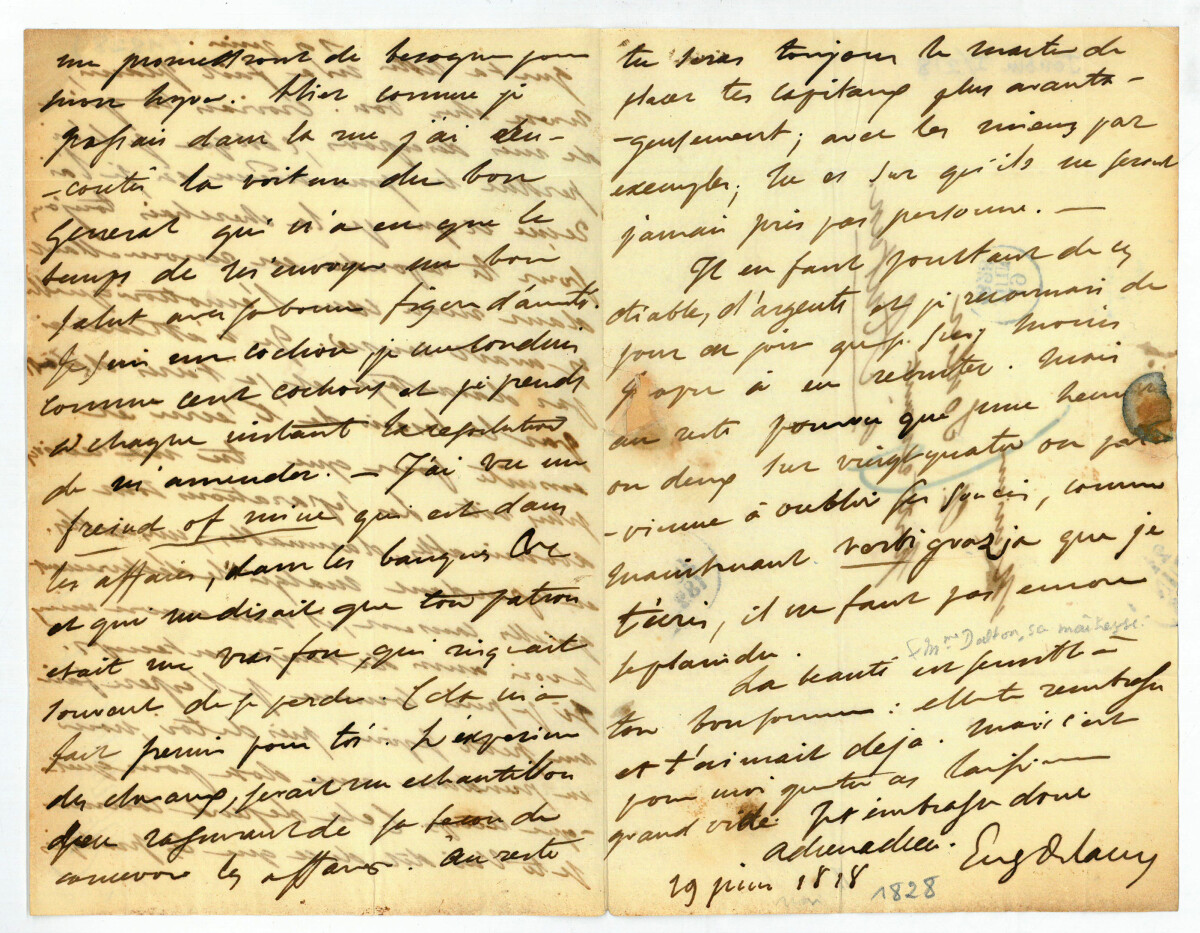 me promettront de besogne pour
mon hyver. Hier comme je
passais dans la rue j'ai ren-
-contré la voiture du bon
Général qui n'a eu que le
temps de m'envoyer un bon
salut avec sa bonne figure
Je suis un cochon, je me conduis
comme cent cochons et je prends
à chaque instant la résolution
de m'amender. — J'ai vu un
freind of mine qui est dans
les affaires, dans les banques &c
et qui me disait que ton patron
etait un vrai fou, qui risquait
souvent de se perdre. Cela m'a
fait fremir pour toi. L'experience
des chevaux, serait un echantillon
peu rassurant de sa facon de
concevoir les affaires. Au reste
tu seras toujours le maitre de
placer tes capitaux plus avanta-
-geusement; avec les miens par
exemple; tu es sur qu'ils ne seront
jamais pris par personne. —
Il en faut pourtant de ces
diables d'argents et je reconnais de
jour en jour que je suis moins
propre à en recruter. Mais
au reste pourvu que une heure
ou deux sur vingt quatre on par-
-vienne à oublier ses soucis, comme
maintenant verbi grazja que je
t'écris, il ne faut pas encore
se plaindre.
La beauté est sensible à
(Mme Dalton, sa maîtresse.
ton bonsommes : elle te rembrasse
et t'aimait deja. Mais c'est
pour moi que tu as laissé un
grand vide. Je t'embrasse donc
Adieu adieu. Eug Delacroix
19 juin 1818 1828